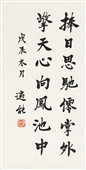 捧日思馳僊掌外
擎天心向鳳池中
戊辰冬月